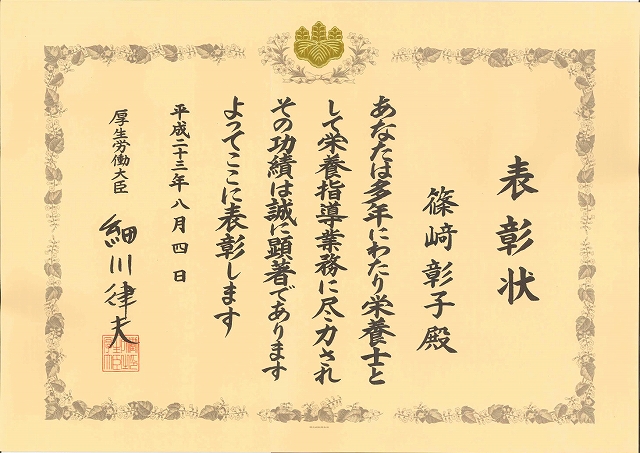 表彰状
篠﨑彰子殿
あなたは多年にわたり栄養士と
して栄養指導業務に尽力され
その功績は誠に顕著であります
よってここに表彰します
平成二十三年八月四日
厚生労働大臣
細川律夫